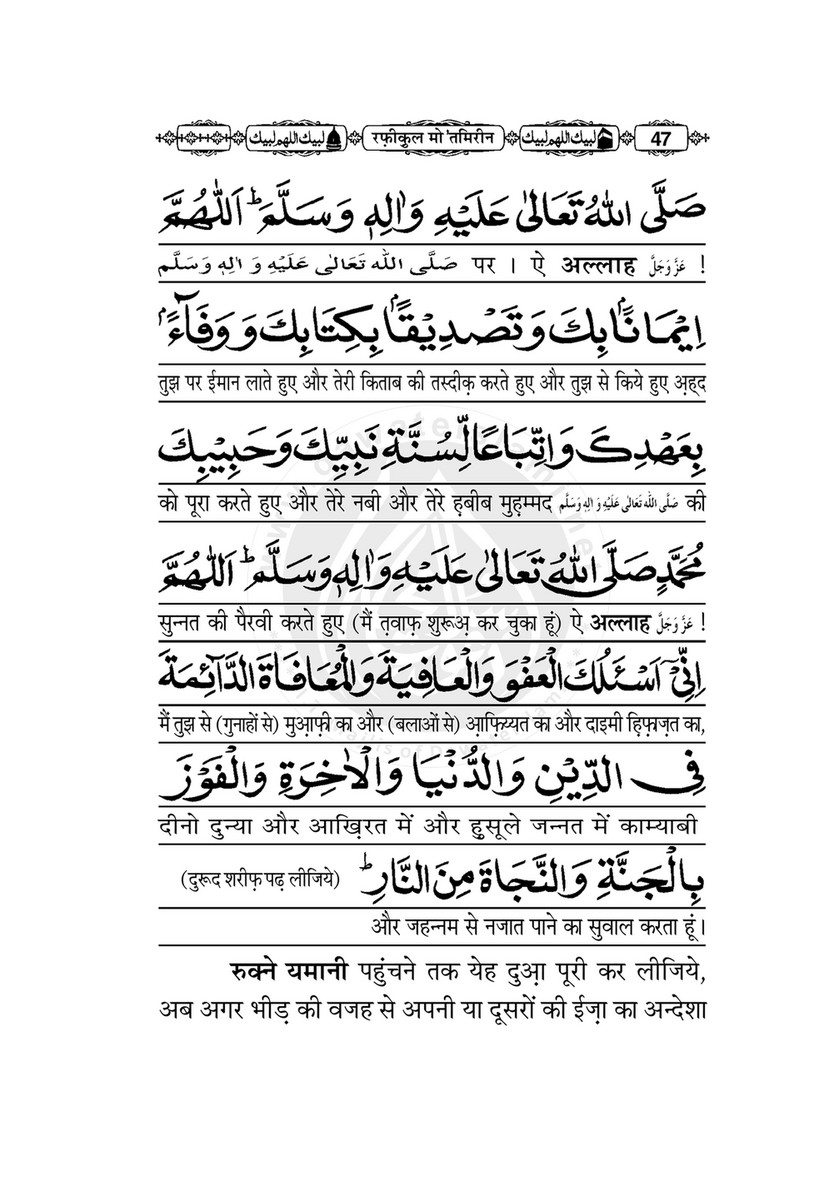 لبيك اللهم لبيك रफ़ीकुल मो 'तमिरीन لبيك اللهم لبيك 47
صَلَّى اللهُ تَعَالىٰ عَلَيْهِ وَاٰلِهٖ وَسَلَّمَ ؕ اَللّٰهُمَّ
صَلَّى اللهُ تَعَالٰى عَلَيْهِ وَ اٰلِهٖ وَسَلَّم पर । ऐ अल्लाह عَزَّوَجَلَّ !
اِيْمَانًاۢ بِكَ وَتَصْدِيْقًاۢ بِكِتَابِكَ وَ وَفَآءًۢ
तुझ पर ईमान लाते हुए और तेरी किताब की तस्दीक़ करते हुए और तुझ से किये हुए अ़ह्द
بِعَهْدِكَ وَاتِّبَاعًا لِّسُنَّةِ نَبِيِّكَ وَحَبِيْبِكَ
को पूरा करते हुए और तेरे नबी और तेरे ह़बीब मुह़म्मद صَلَّى الله تَعَالٰى عَلَيْهِ وَاٰلِهٖ وَسَلَّم की
مُحَمَّدٍ صَلَّى اللهُ تَعَالىٰ عَلَيْهِ وَاٰلِهٖ وَسَلَّمَ ؕ اَللّٰهُمَّ
सुन्नत की पैरवी करते हुए (मैं त़वाफ़ शुरूअ़ कर चुका हूं) ऐ अल्लाह عَزَّوَجَلَّ !
اِنِّيْٓ اَسْئَلُكَ الْعَفْوَ وَالْعَافِيَةَ وَالْمُعَافَاةَ الدَّآئِمَةَ
मैं तुझ से (गुनाहों से) मुआ़फ़ी का और (बलाओं से) आ़फ़िय्यत का और दाइमी हि़फ़ाज़त का,
فِي الدِّيْنِ وَالدُّنْيَا وَالْاٰخِرَةِ وَالْفَوْزَ
दीनो दुन्या और आखि़रत में और हु़सूले जन्नत में काम्याबी
بِالْجَنَّةِ وَالنَّجَاةَ مِنَ النَّارِ ؕ (दुरूद शरीफ़ पढ़ लीजिये)
और जहन्नम से नजात पाने का सुवाल करता हूं।
रुक्ने यमानी पहुंचने तक येह दुआ़ पूरी कर लीजिये,
अब अगर भीड़ की वजह से अपनी या दूसरों की ईज़ा का अन्देशा